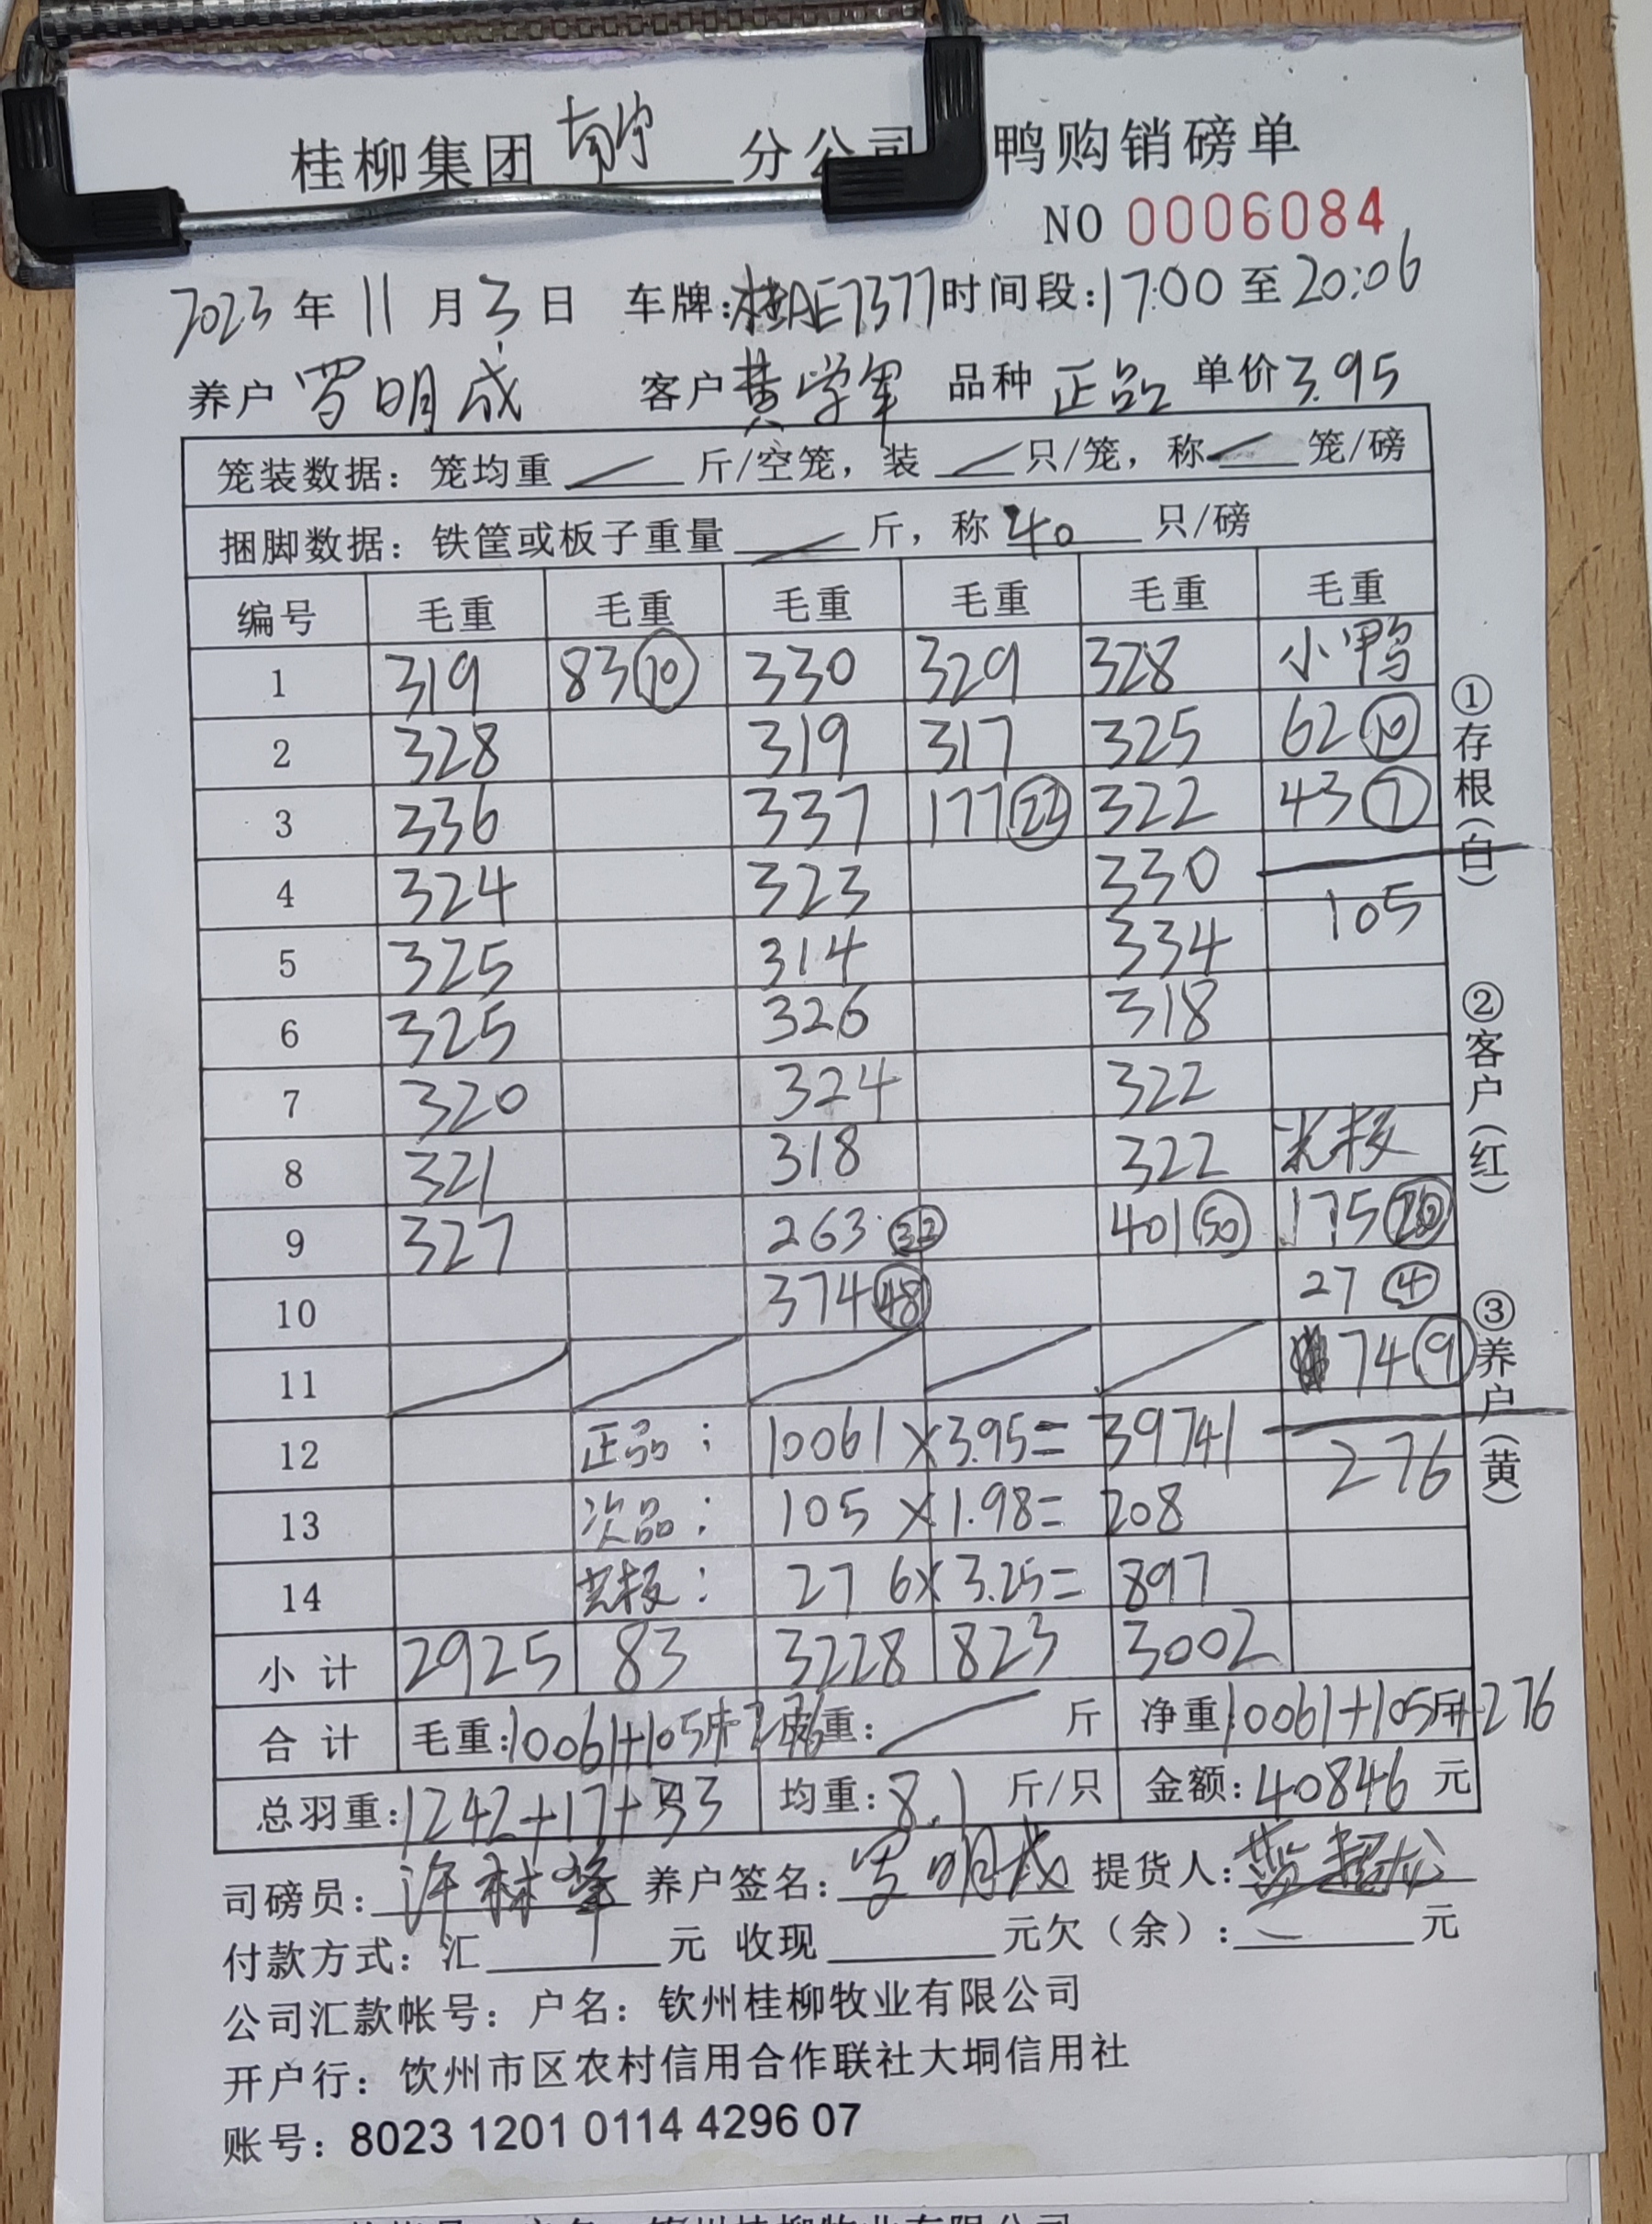 桂柳集团南宁分公司 鸭购销磅单
NO 0006084
2023年11月3日 车牌:桂AE7377 时间段:17:00至20:06
养户 罗明成 客户 黄学军 品种 正品 单价 3.95
笼装数据: 笼均重 / 斤/空笼, 装 / 只/笼, 称 / 笼/磅
捆脚数据: 铁筐或板子重量 / 斤, 称 40 只/磅
编号 毛重 毛重 毛重 毛重 毛重 毛重
1 319 83⑩ 330 329 328 小鸭
2 328 319 317 325 62⑩
3 336 337 177㉒ 322 43⑦
4 324 323 330
5 325 314 334 105
6 325 326 318
7 320 324 322
8 321 318 322 光板
9 327 263㉜ 401㊿ 175⑳
10 374㊽ 27④
11 / / / / / 74⑨
12 正品: 10061×3.95= 39741 276
13 次品: 105×1.98= 208
14 光板: 276×3.25= 897
小计 2925 83 3228 823 3002
合计 毛重:10061+105斤+276 皮重: / 斤 净重:10061+105斤+276
总羽重:1242+17+33 均重:8.1斤/只 金额:40846元
司磅员: 许林峰 养户签名: 罗明成 提货人:
付款方式: 汇 元 收现 元欠(余): 元
公司汇款帐号: 户名: 钦州桂柳牧业有限公司
开户行: 饮州市区农村信用合作联社大垌信用社
账号: 8023 1201 0114 4296 07
①存根(白)
②客户(红)
③养户(黄)